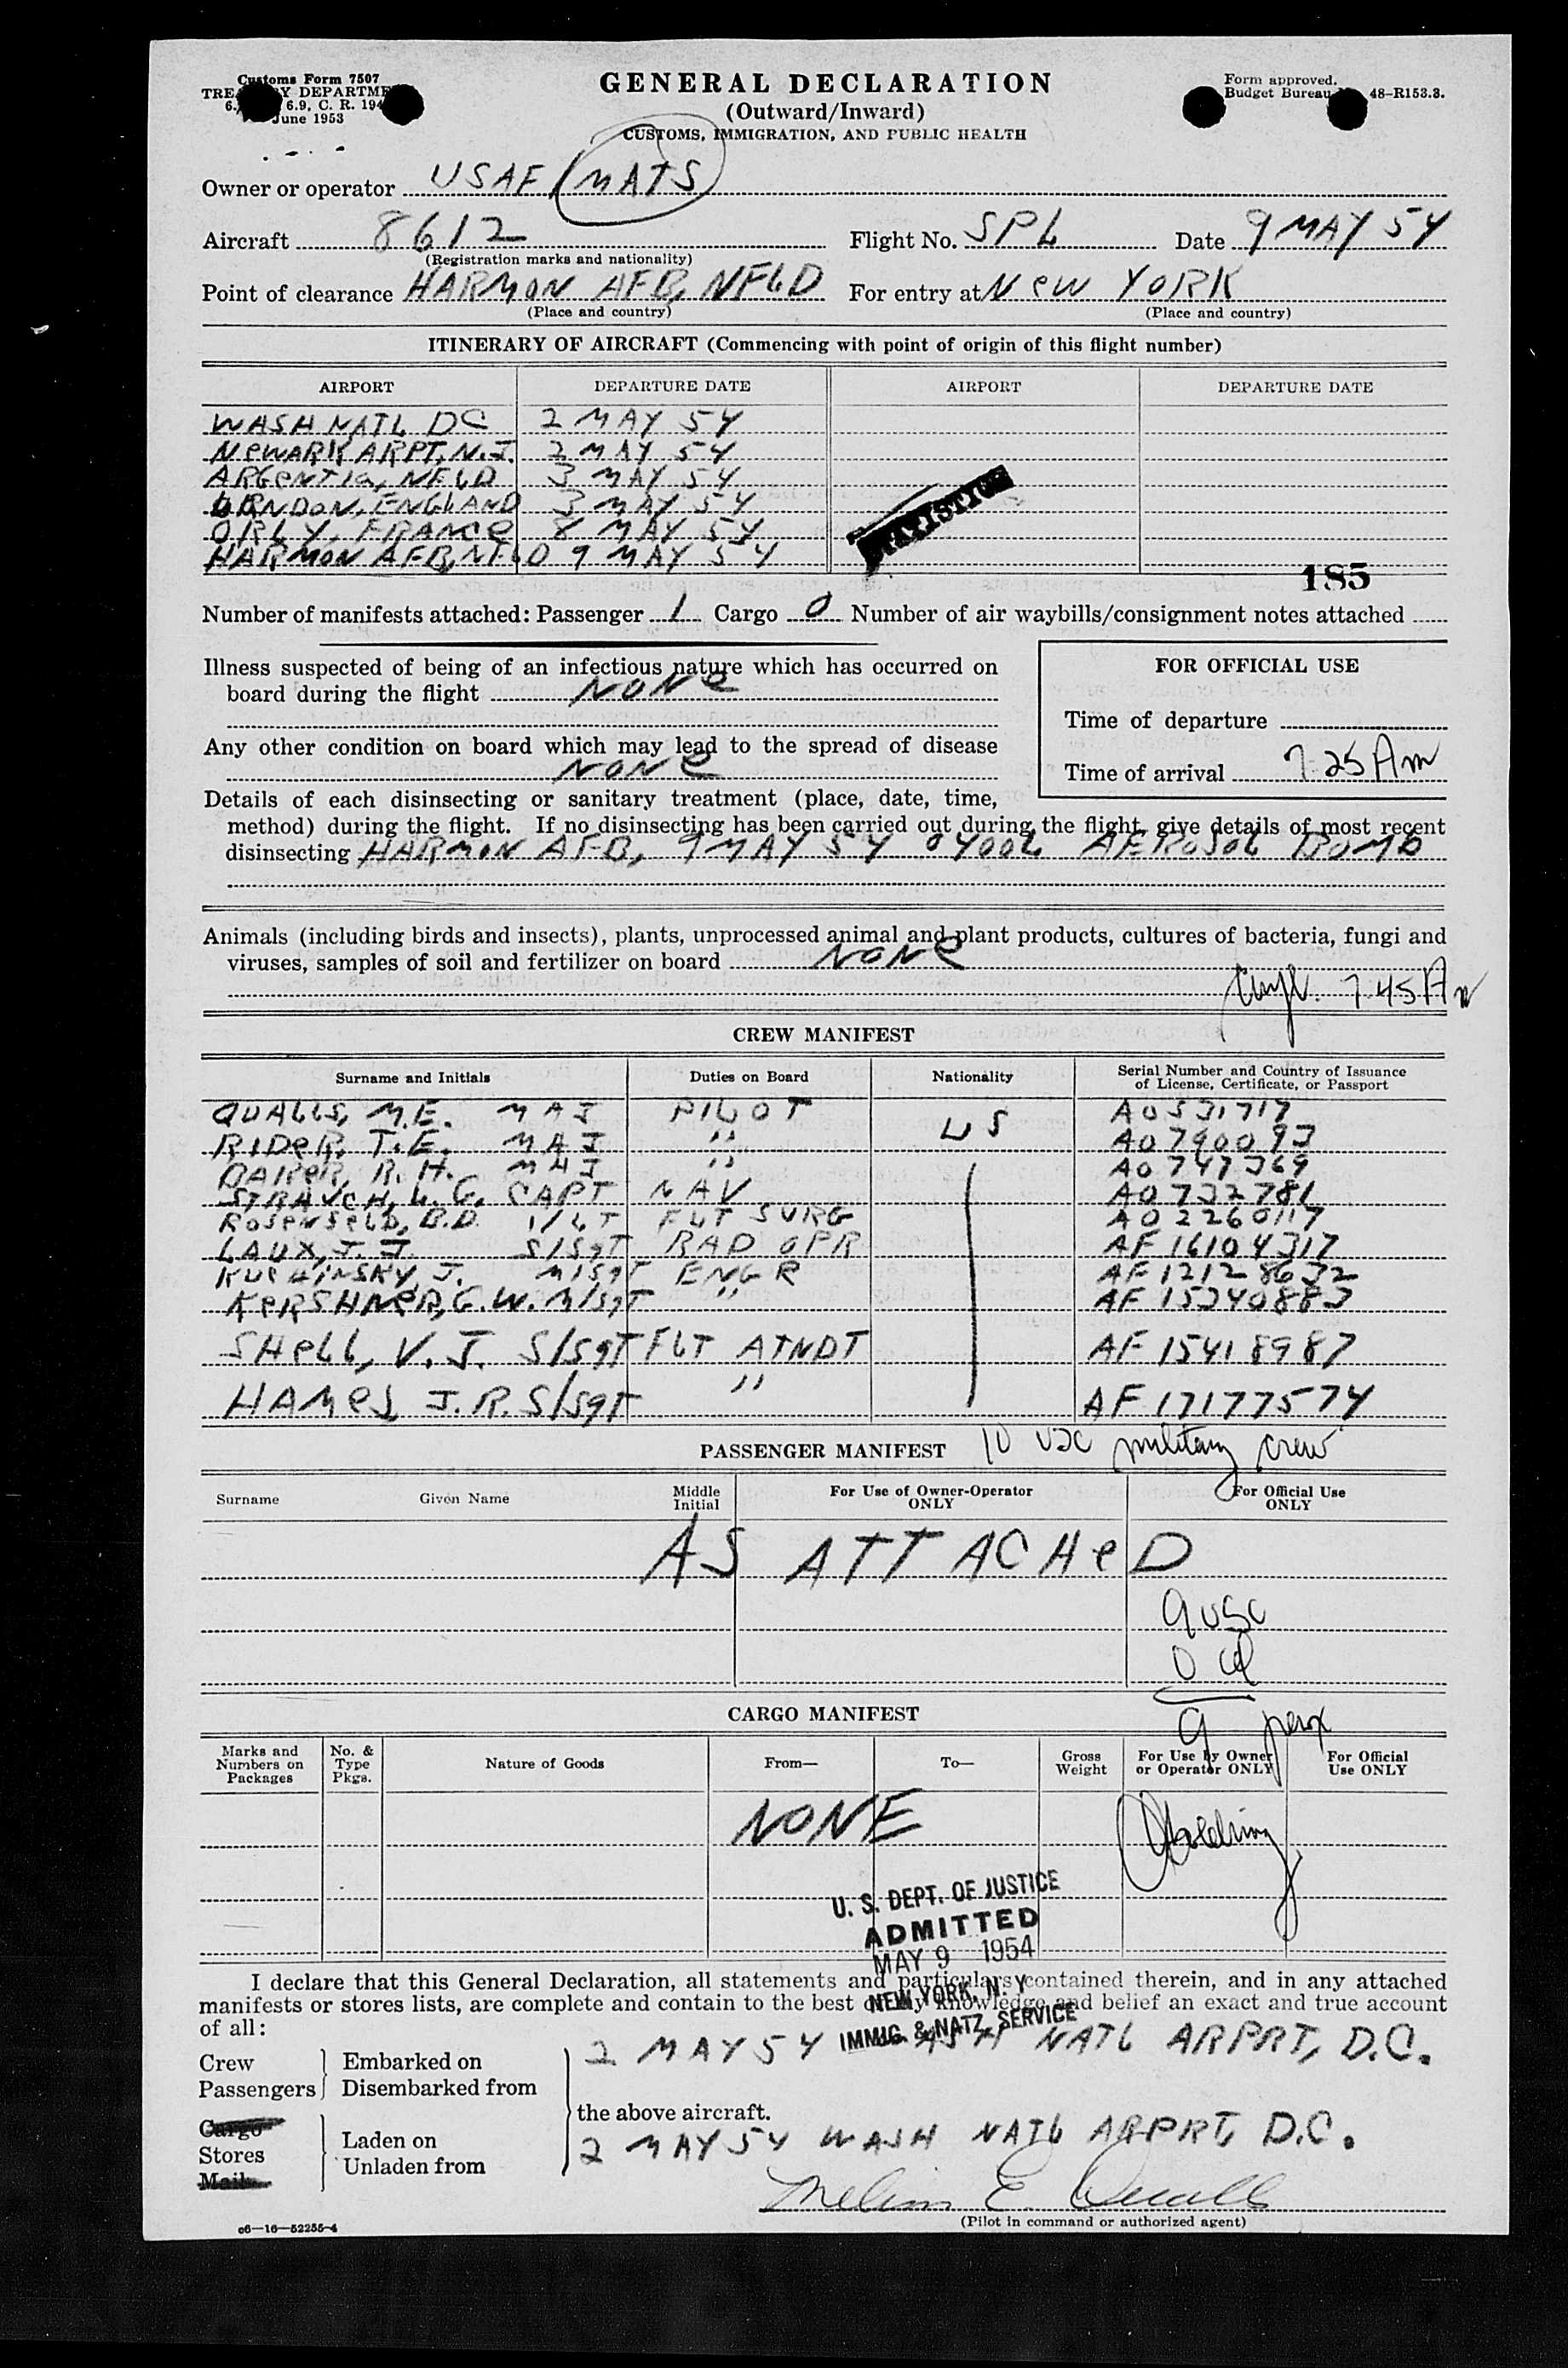 Customs Form 7507
TREASURY DEPARTMENT
6.9, C. R. 194
June 1953
GENERAL DECLARATION
(Outward/Inward)
CUSTOMS, IMMIGRATION, AND PUBLIC HEALTH
Form approved.
Budget Bureau 48-R153.3.
Owner or operator USAF/MATS
Aircraft 8612 Flight No. SPL Date 9 MAY 54
(Registration marks and nationality)
Point of clearance HARMON AFB, NFLD For entry at NEW YORK
(Place and country) (Place and country)
ITINERARY OF AIRCRAFT (Commencing with point of origin of this flight number)
AIRPORT DEPARTURE DATE AIRPORT DEPARTURE DATE
WASH NATL DC 2 MAY 54
NEWARK ARPT, N.J. 2 MAY 54
ARGENTIA, NFLD 3 MAY 54
ENGLAND 3 MAY 54
ORLY, FRANCE 8 MAY 54
HARMON AFB, NFLD 9 MAY 54
STATISTICS
185
Number of manifests attached: Passenger 1 Cargo 0 Number of air waybills/consignment notes attached
Illness suspected of being of an infectious nature which has occurred on
board during the flight NONE
Any other condition on board which may lead to the spread of disease
NONE
FOR OFFICIAL USE
Time of departure
Time of arrival 7 25 Am
Details of each disinsecting or sanitary treatment (place, date, time,
method) during the flight. If no disinsecting has been carried out during the flight, give details of most recent
disinsecting HARMON AFB, 9 MAY 54 0400L AEROSOL BOMB
Animals (including birds and insects), plants, unprocessed animal and plant products, cultures of bacteria, fungi and
viruses, samples of soil and fertilizer on board NONE
7 45 Am
CREW MANIFEST
Surname and Initials Duties on Board Nationality Serial Number and Country of Issuance
of License, Certificate, or Passport
QUALLS, M.E. MAJ PILOT US AO531717
RIDER, T.E. MAJ " AO790093
BAKER, R.H. MAJ " AO747369
STRAUCH, L.G. CAPT NAV AO732781
ROSENFELD, B.D. 1/LT FLT SURG AO2260117
LAUX, J.J. S/SGT RAD OPR AF16104317
KUCHINSKY, J. M/SGT ENGR AF12128632
KERSHNER, G.W. M/SGT " AF15340883
SHELL, V.J. S/SGT FLT ATNDT AF15418987
HAMES J.R. S/SGT " AF17177574
PASSENGER MANIFEST 10 USC military crew
Surname Given Name Middle
Initial For Use of Owner-Operator
ONLY For Official Use
ONLY
AS ATTACHED
9 USC
0
9
CARGO MANIFEST
Marks and
Numbers on
Packages No. &
Type
Pkgs. Nature of Goods From— To— Gross
Weight For Use by Owner
or Operator ONLY For Official
Use ONLY
NONE
U. S. DEPT. OF JUSTICE
ADMITTED
MAY 9 1954
NEW YORK, N. Y
IMMIG. & NATZ. SERVICE
I declare that this General Declaration, all statements and particulars contained therein, and in any attached
manifests or stores lists, are complete and contain to the best of my knowledge and belief an exact and true account
of all:
2 MAY 54 WASH NATL ARPRT, D.C.
Crew Embarked on
Passengers Disembarked from
the above aircraft.
Cargo
Stores Laden on
Mail Unladen from
2 MAY 54 WASH NATL ARPRT, D.C.
Melvin E. Qualls
(Pilot in command or authorized agent)
c6—16—52255-4